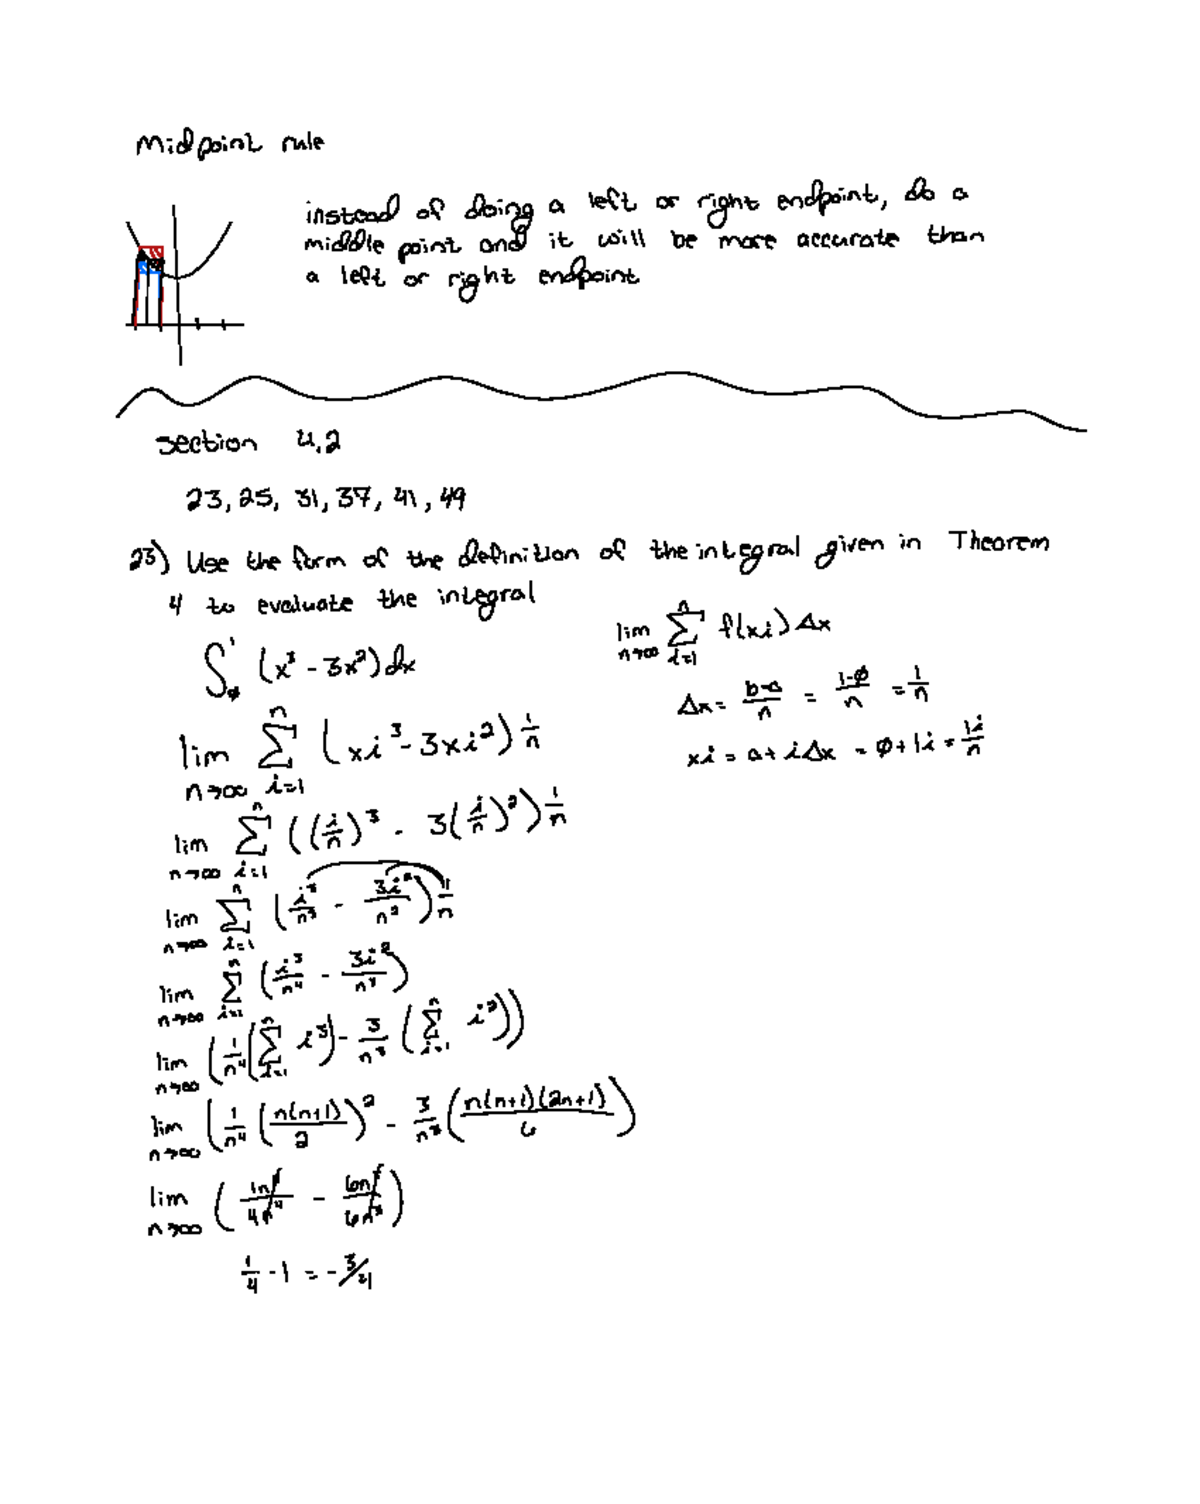 Midpoint rule
instead of doing a left or right endpoint, do a
middle point and it will be more accurate than
a left or right endpoint
section 4.2
23, 25, 31, 37, 41, 49
23) Use the form of the definition of the integral given in Theorem
4 to evaluate the integral
∫₀¹ (x³ - 3x²)dx
lim n→∞ Σ i=1 n f(xi) Δx
Δx = b-a/n = 1-0/n = 1/n
xi = a + iΔx = 0 + 1i = 1i/n
lim n→∞ Σ i=1 n (xi³ - 3xi²) 1/n
lim n→∞ Σ i=1 n ((i/n)³ - 3(i/n)²) 1/n
lim n→∞ Σ i=1 n (i³/n³ - 3i²/n²) 1/n
lim n→∞ Σ i=1 n (i³/n⁴ - 3i²/n³)
lim n→∞ (1/n⁴ (Σ i=1 n i³) - 3/n³ (Σ i=1 n i²))
lim n→∞ (1/n⁴ (n(n+1)/2)² - 3/n³ (n(n+1)(2n+1)/6)
lim n→∞ (1n⁴/4n⁴ - 6n³/6n³)
1/4 - 1 = -3/4